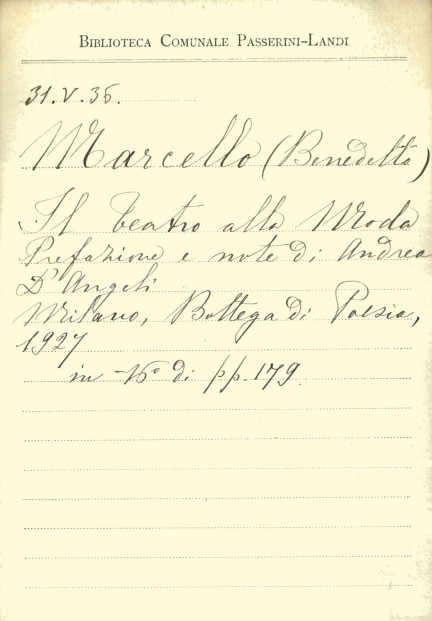 BIBLIOTECA COMUNALE PASSERINI-LANDI
31.V.35.
Marcello (Benedetto)
Il teatro alla Moda
Prefazione e note di Andrea
D'Angeli
Milano, Bottega di Poesia,
1927
in -16° di pp. 179